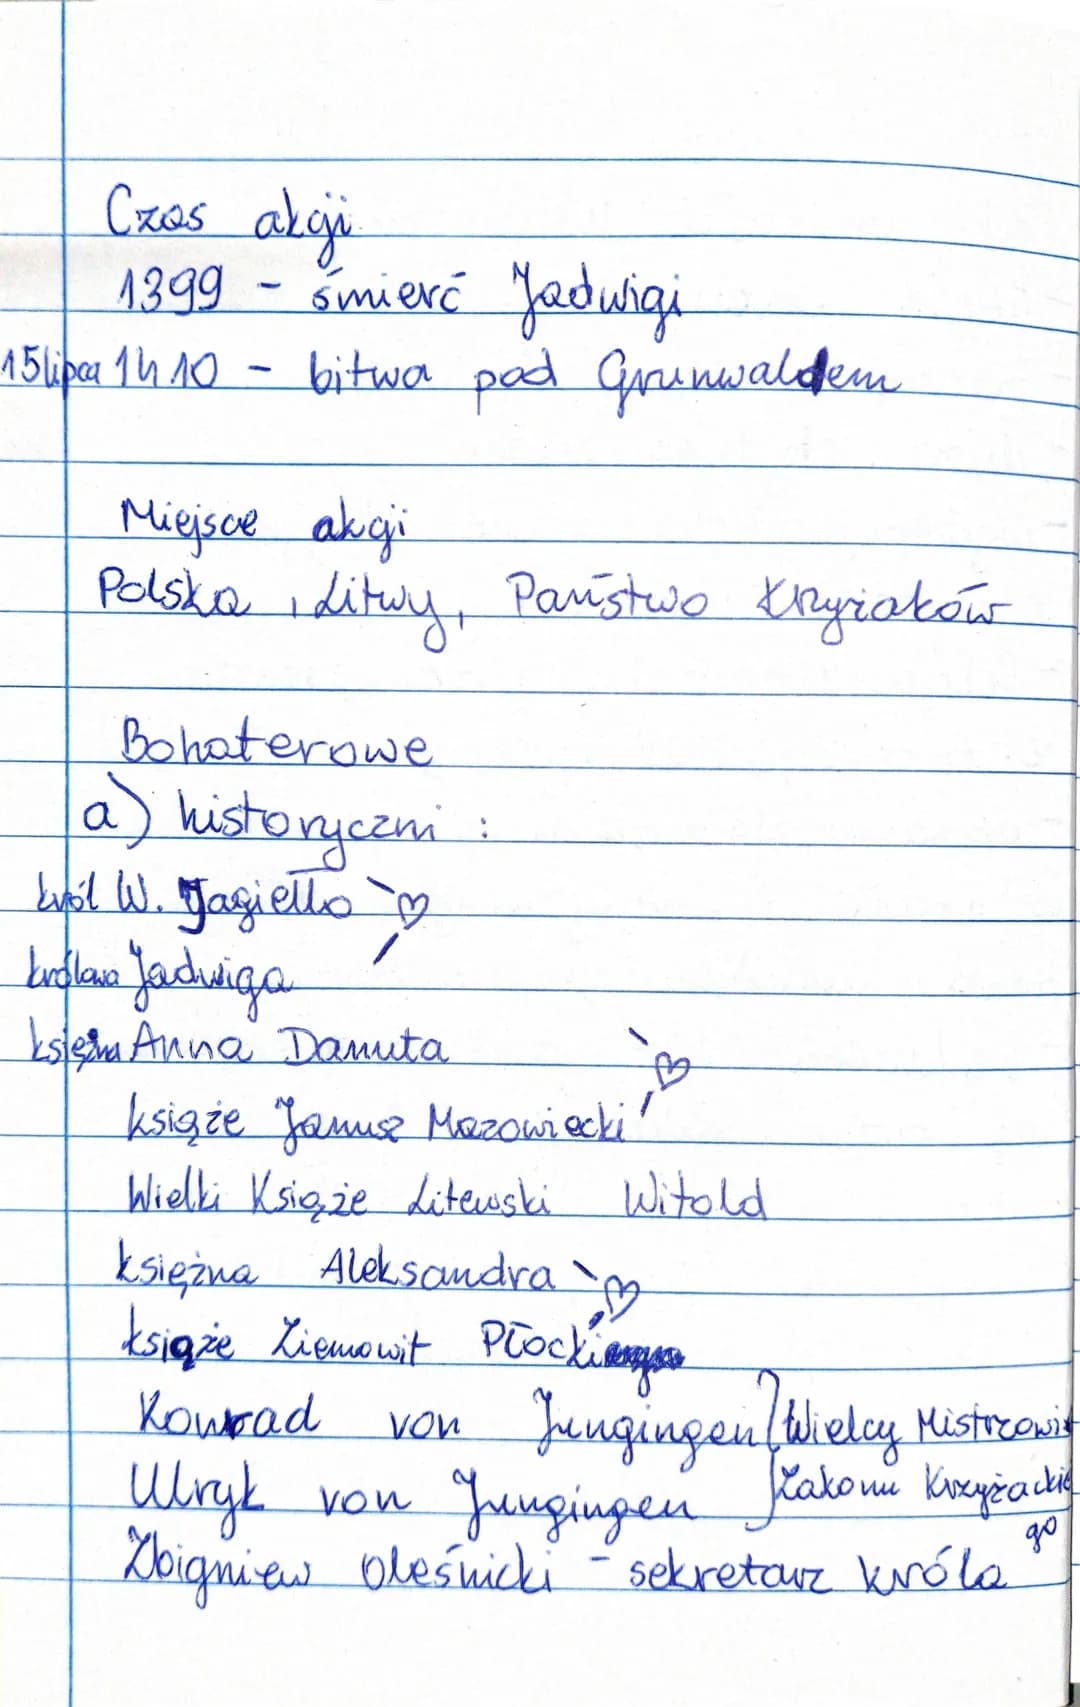 Czas akcji
1399 - śmierć Jadwigi
15 lipca 1410 - bitwa pod Grunwaldem
Miejsce akcji
Polska, Litwy, Państwo Krzyżaków
Bohaterowe
a) historyczni :
król W. Jagiełło
królowa Jadwiga
księżna Anna Danuta
książe Janusz Mazowiecki
Wielki Książe Litewski Witold
księżna Aleksandra
książe Ziemowit Płocki
Konrad von Jungingen Wielcy Mistrzowie
Ulryk von Jungingen Zakonu Krzyżackie
go
Zbigniew Oleśnicki - sekretarz króla